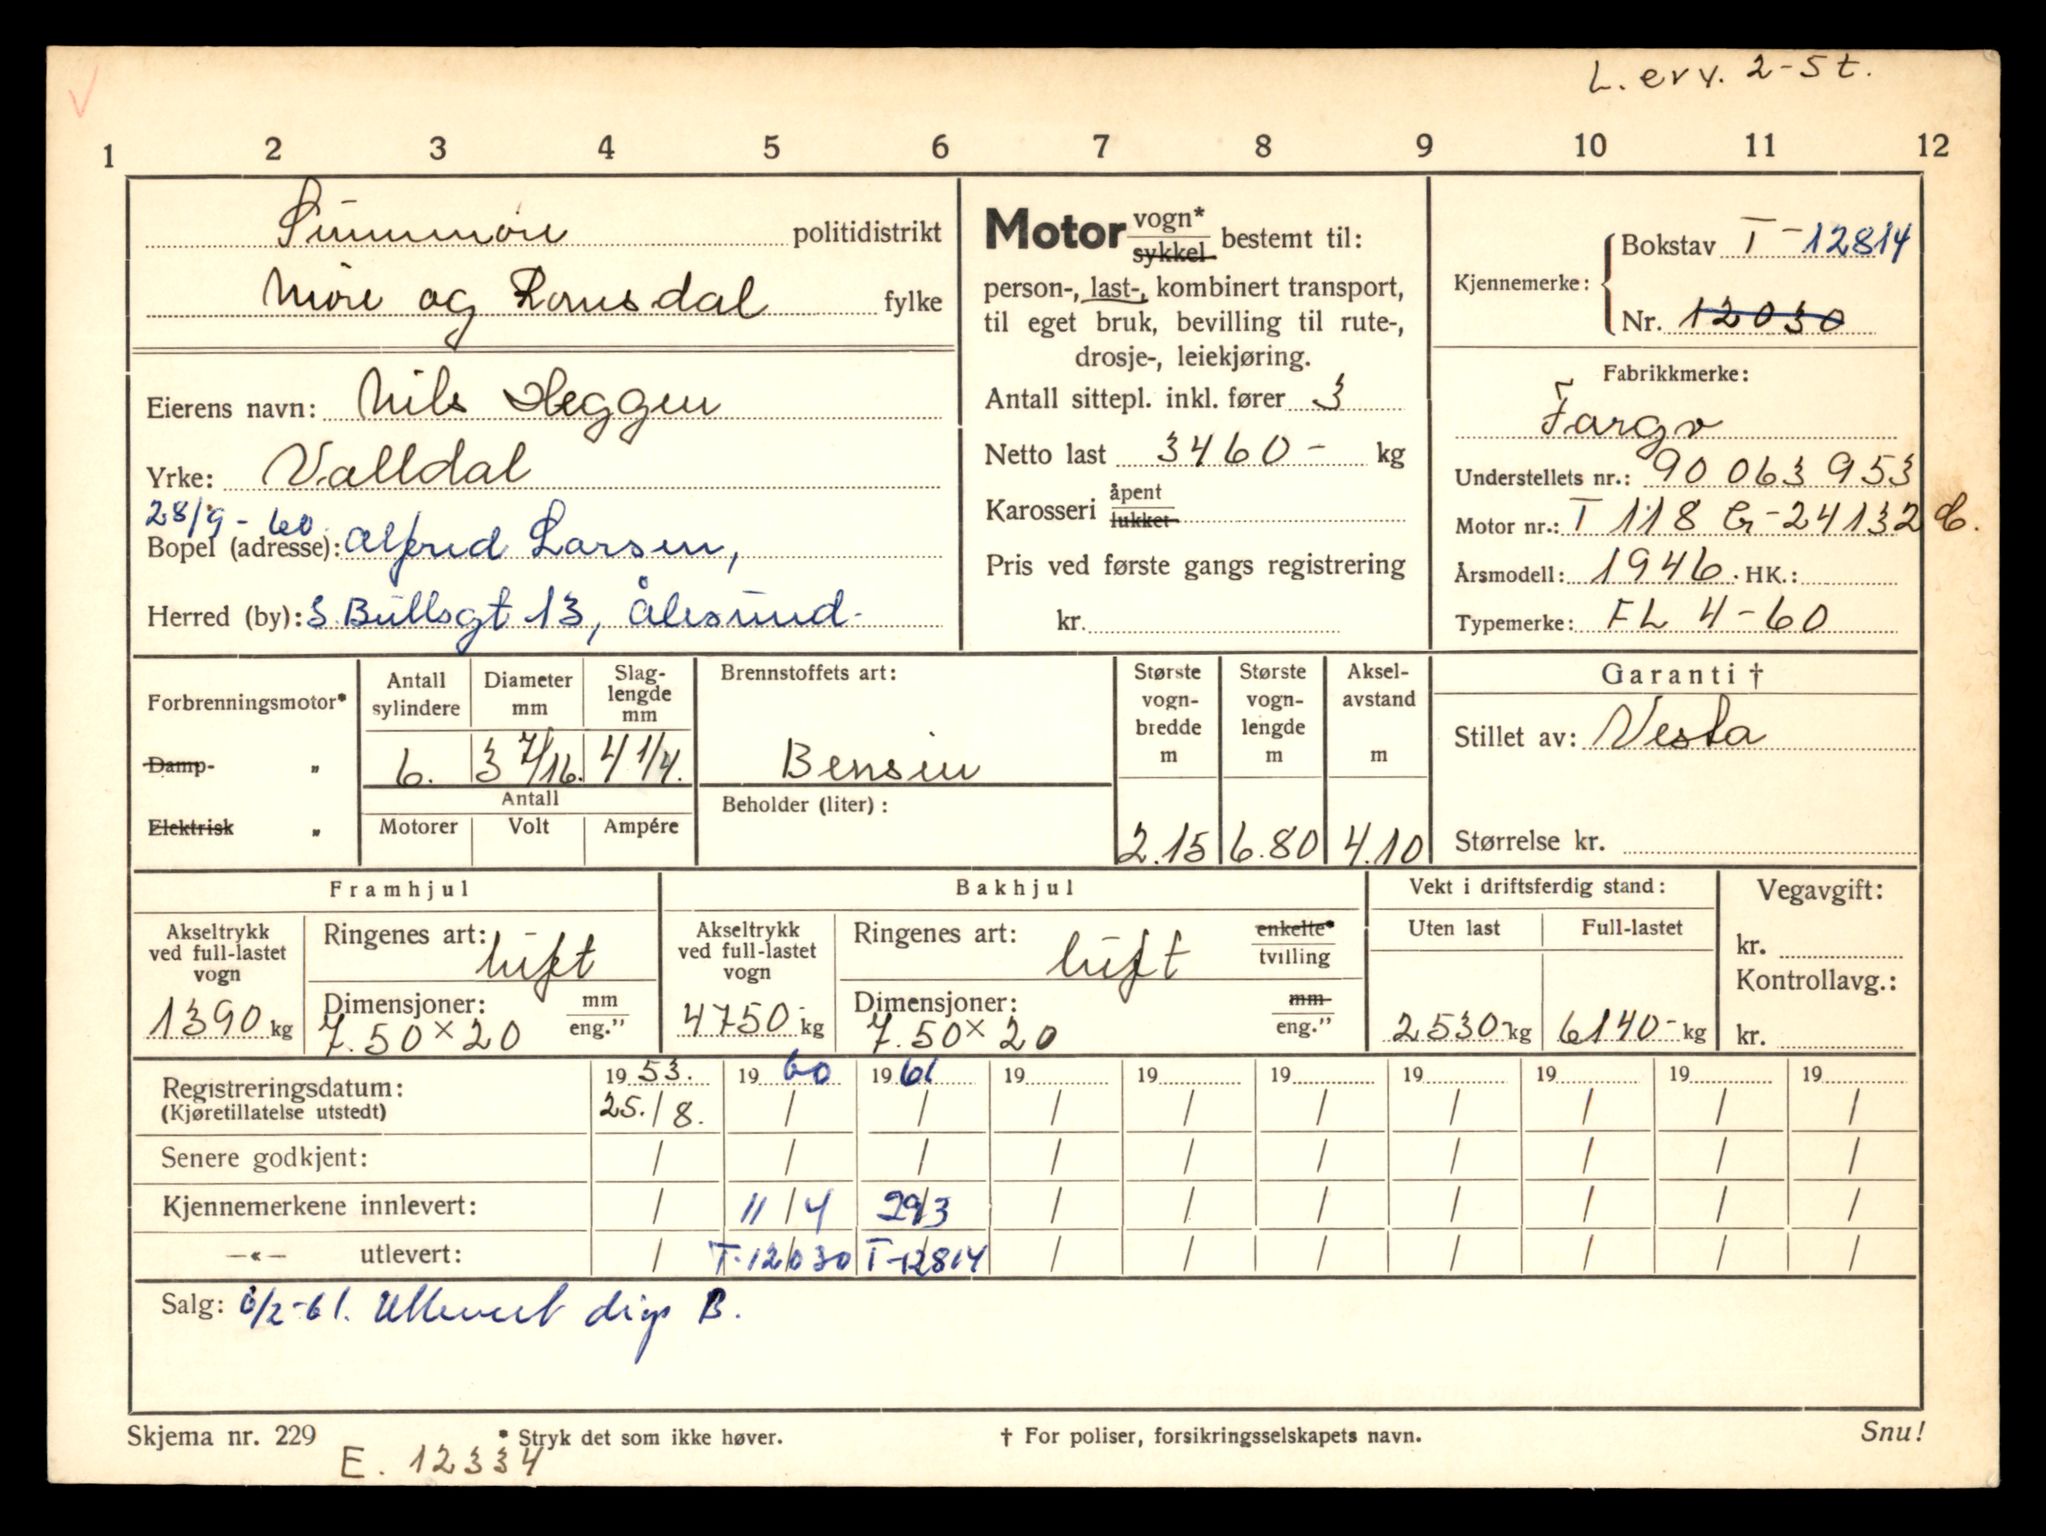 L. erv. 2-5 t.
1 2 3 4 5 6 7 8 9 10 11 12
Sunnmøre politidistrikt
Møre og Romsdal fylke
Eierens navn: Nils Heggen
Yrke: Valldal
28/9-60.
Bopel (adresse): Alfred Larsen,
Herred (by): S. Bullsgt 13, Ålesund.
Motor vogn* sykkel bestemt til:
person-, last-, kombinert transport,
til eget bruk, bevilling til rute-,
drosje-, leiekjøring.
Antall sittepl. inkl. fører 3
Netto last 3460- kg
Karosseri åpent lukket
Pris ved første gangs registrering
kr.
Kjennemerke: Bokstav T-12814
Nr. 12030
Fabrikkmerke:
Fargo
Understellets nr.: 90 063 953
Motor nr.: T 118 G-24132 C.
Årsmodell: 1946. HK.:
Typemerke: FL 4-60
Forbrenningsmotor*
Damp- „
Elektrisk „
Antall sylindere
6.
Diameter mm
3 7/16.
Slag-lengde mm
4 1/4.
Antall
Motorer Volt Ampére
Brennstoffets art:
Bensin
Beholder (liter):
Største vogn-bredde m
2.15
Største vogn-lengde m
6.80
Aksel-avstand m
4.10
Garanti †
Stillet av: Vesta
Størrelse kr.
Framhjul
Akseltrykk ved full-lastet vogn
1390 kg
Ringenes art: luft
Dimensjoner: mm eng.”
7.50 x 20
Bakhjul
Akseltrykk ved full-lastet vogn
4750- kg
Ringenes art: luft enkelte* tvilling
Dimensjoner: mm eng.”
7.50 x 20
Vekt i driftsferdig stand:
Uten last Full-lastet
2530- kg 6140- kg
Vegavgift:
kr.
Kontrollavg.:
kr.
Registreringsdatum: 1953. 1960 1961 19 19 19 19 19 19 19
(Kjøretillatelse utstedt) 25./8. / / / / / / / / /
Senere godkjent: / / / / / / / / / /
Kjennemerkene innlevert: / 11/4 29/3 / / / / / / /
—«— utlevert: / T-12030 T-12814 / / / / / / /
Salg: 6/2-61. Utlevert dips B.
Skjema nr. 229 * Stryk det som ikke høver. † For poliser, forsikringsselskapets navn. Snu!
E. 12334